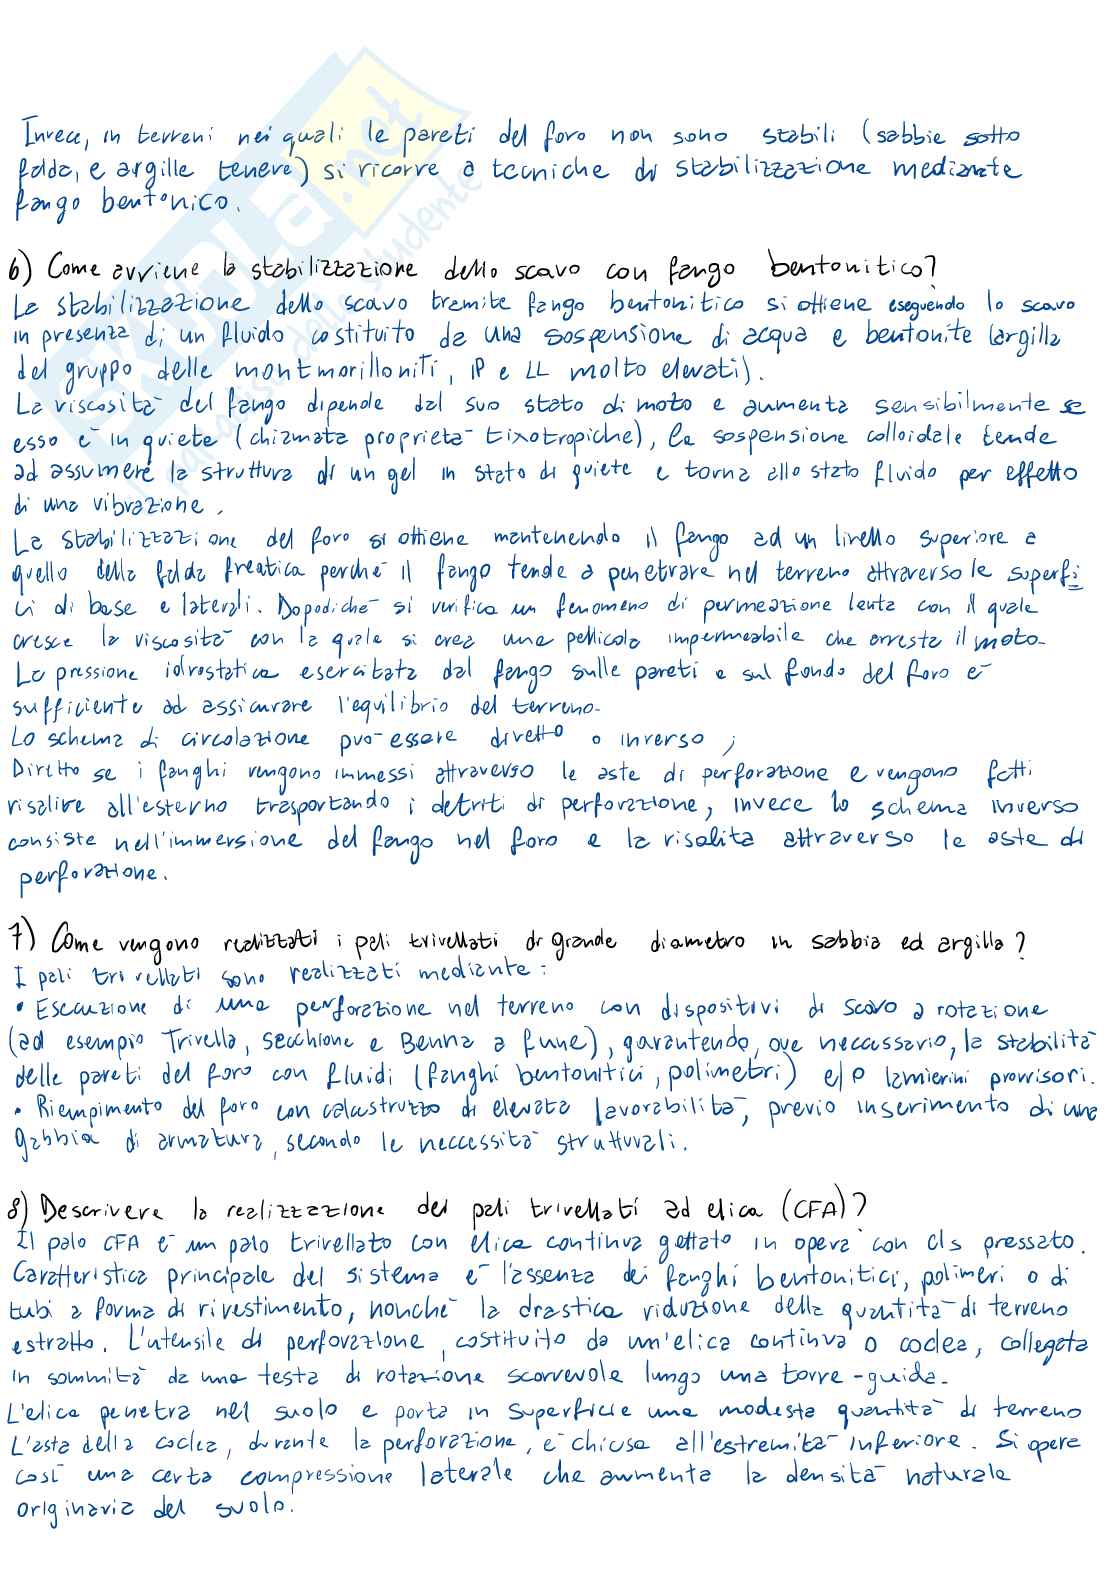 Invece, in terreni nei quali le pareti del foro non sono stabili (sabbie sotto
falda, e argille tenere) si ricorre a tecniche di stabilizzazione mediante
fango bentonico.
6) Come avviene la stabilizzazione dello scavo con fango bentonitico?
La stabilizzazione dello scavo tramite fango bentonitico si ottiene eseguendo lo scavo
in presenza di un fluido costituito da una sospensione di acqua e bentonite (argilla
del gruppo delle montmorilloniti, IP e LL molto elevati).
La viscosità del fango dipende dal suo stato di moto e aumenta sensibilmente se
esso è in quiete (chiamata proprietà tixotropiche), la sospensione colloidale tende
ad assumere la struttura di un gel in stato di quiete e torna allo stato fluido per effetto
di una vibrazione.
La stabilizzazione del foro si ottiene mantenendo il fango ad un livello superiore a
quello della falda freatica perché il fango tende a penetrare nel terreno attraverso le superfi
ci di base e laterali. Dopodiché si verifica un fenomeno di permeazione lenta con il quale
cresce la viscosità con la quale si crea una pellicola impermeabile che arresta il moto.
La pressione idrostatica esercitata dal fango sulle pareti e sul fondo del foro è
sufficiente ad assicurare l'equilibrio del terreno.
Lo schema di circolazione può essere diretto o inverso;
Diretto se i fanghi vengono immessi attraverso le aste di perforazione e vengono fatti
risalire all'esterno trasportando i detriti di perforazione, invece lo schema inverso
consiste nell'immersione del fango nel foro e la risalita attraverso le aste di
perforazione.
7) Come vengono realizzati i pali trivellati di grande diametro in sabbia ed argilla?
I pali trivellati sono realizzati mediante:
• Esecuzione di una perforazione nel terreno con dispositivi di scavo a rotazione
(ad esempio Trivella, secchione e Benna a fune), garantendo, ove neccessario, la stabilità
delle pareti del foro con fluidi (fanghi bentonitici, polimetri) e/o lamierini provvisori.
• Riempimento del foro con calcustruzzo di elevata lavorabilità, previo inserimento di una
gabbia di armatura, secondo le neccessità strutturali.
8) Descrivere la realizzazione dei pali trivellati ad elica (CFA)?
Il palo CFA è un palo trivellato con elica continua gettato in opera con cls pressato.
Caratteristica principale del sistema è l'assenza dei fanghi bentonitici, polimeri o di
tubi a forma di rivestimento, nonché la drastica riduzione della quantità di terreno
estratto. L'utensile di perforazione, costituito da un'elica continua o coclea, collegata
in sommità da una testa di rotazione scorrevole lungo una torre-guida.
L'elica penetra nel suolo e porta in superficie una modesta quantità di terreno
L'asta della coclea, durante la perforazione, è chiusa all'estremità inferiore. Si opera
così una certa compressione laterale che aumenta la densità naturale
originaria del suolo.
SKUOLA.net